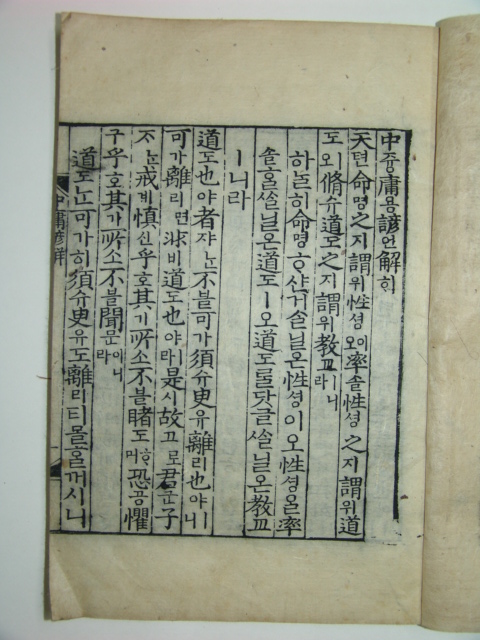 中듕庸용諺언解ᄒᆡ
天텬命명之지謂위性셩이오率솔性셩之지謂위道
도오脩슈道도之지謂위敎교ㅣ니라
하ᄂᆞᆯ히命명ᄒᆞ샨거슬닐온性셩이오性셩을率
솔ᄒᆞᆯᄉᆞᆯ닐온道도ㅣ오道도ᄅᆞᆯ닷글ᄉᆞᆯ닐온敎교
ㅣ니라
道도也야者쟈ᄂᆞᆫ不블可가須슈臾유離리也야ㅣ니
可가離리면非비道도也야ㅣ라是시故고로君군子
ᄌᆞᄂᆞᆫ戒계愼신乎호其기所소不블睹도ᄒᆞ며恐공懼
구乎호其기所소不블聞문이니라
道도ᄂᆞᆫ可가히須슈臾유도離리티몯ᄒᆞᆯ꺼시니
中庸諺解